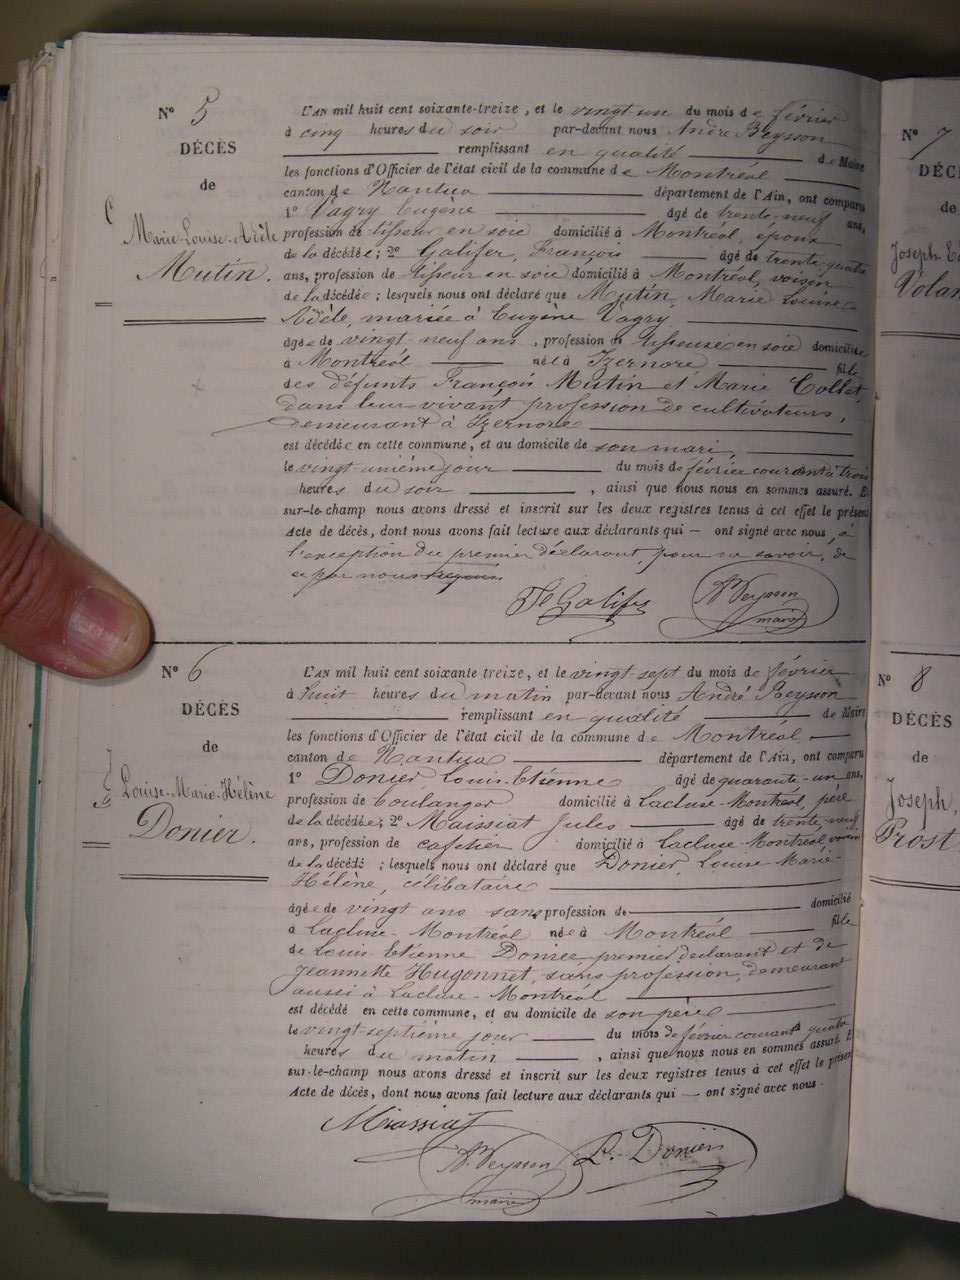 N° 5
DÉCÈS
de
Marie-Louise-Adèle
Mutin.
L'AN mil huit cent soixante-treize, et le vingt-un du mois de février
à cinq heures du soir par-devant nous André Beysson
remplissant en qualité de Maire
les fonctions d'Officier de l'état civil de la commune de Montréal
canton de Nantua département de l'Ain, ont comparu
1° Vagry Eugène âgé de trente-neuf ans,
profession de tisseur en soie domicilié à Montréal, époux
de la décédée; 2° Galifer, François âgé de trente-quatre
ans, profession de tisseur en soie domicilié à Montréal, voisin
de la décédée; lesquels nous ont déclaré que Mutin, Marie Louise
Adèle, mariée à Eugène Vagry
âgée de vingt-neuf ans, profession de tisseuse en soie domiciliée
à Montréal née à Izernore fille
des défunts François Mutin et Marie Collet,
dans leur vivant profession de cultivateurs,
demeurant à Izernore
est décédée en cette commune, et au domicile de son mari,
le vingt-unième jour du mois de février courant à trois
heures du soir, ainsi que nous nous en sommes assuré. Et
sur-le-champ nous avons dressé et inscrit sur les deux registres tenus à cet effet le présent
Acte de décès, dont nous avons fait lecture aux déclarants qui — ont signé avec nous, à
l'exception du premier déclarant, pour ne savoir, de
ce par nous requis
Galifer
A. Beysson
maire
N° 6
DÉCÈS
de
Louise-Marie-Hélène
Donier.
L'AN mil huit cent soixante treize, et le vingt-sept du mois de février
à huit heures du matin par-devant nous André Beysson
remplissant en qualité de Maire
les fonctions d'Officier de l'état civil de la commune de Montréal
canton de Nantua département de l'Ain, ont comparu
1° Donier Louis-Etienne âgé de quarante-un ans,
profession de boulanger domicilié à Lacluse-Montréal, père
de la décédée; 2° Maissiat Jules âgé de trente-neuf
ans, profession de cafetier domicilié à Lacluse-Montréal voisin
de la décédé; lesquels nous ont déclaré que Donier, Louise-Marie-
Hélène, célibataire
âgée de vingt ans sans profession de domicilié
à Lacluse-Montréal née à Montréal fille
de Louis Etienne Donier, premier déclarant et de
Jeannette Hugonnet, sans profession, demeurant
aussi à Lacluse-Montréal
est décédé en cette commune, et au domicile de son père
le vingt-septième jour du mois de février courant à quatre
heures du matin, ainsi que nous nous en sommes assuré. Et
sur-le-champ nous avons dressé et inscrit sur les deux registres tenus à cet effet le présent
Acte de décès, dont nous avons fait lecture aux déclarants qui — ont signé avec nous.
Maissiat
A. Beysson
maire
L. Donier
N° 7
DÉC
de
Joseph
Volan
N° 8
DÉCÈS
de
Joseph,
Prost